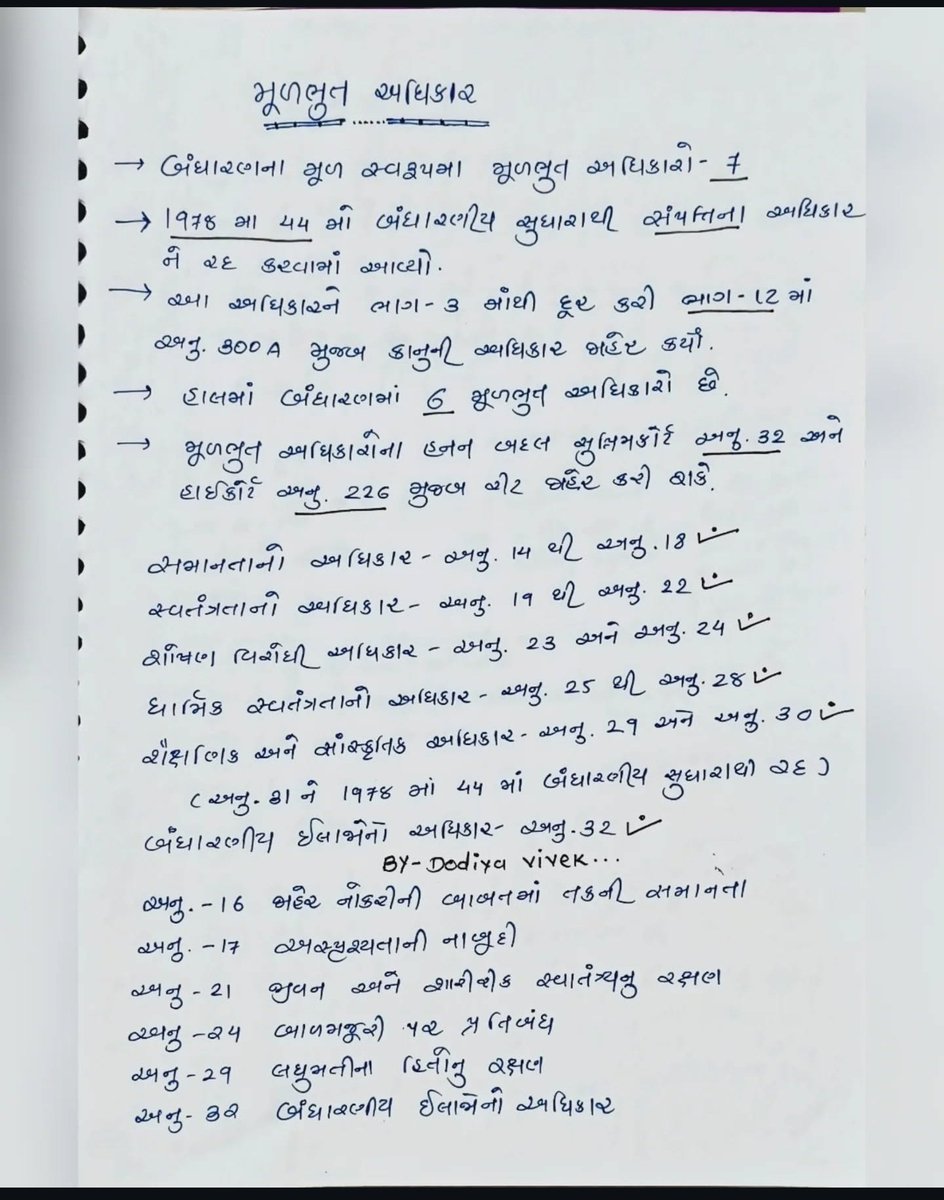 મૂળભુત અધિકાર
→ બંધારણના મૂળ સ્વરૂપમા મૂળભુત અધિકારો- 7
→ 1978 મા 44 માં બંધારણીય સુધારાથી સંપત્તિના અધિકાર
ને રદ કરવામાં આવ્યો.
→ આ અધિકારને ભાગ-3 માંથી દૂર કરી ભાગ-12 માં
અનુ. 300A મુજબ કાનુની અધિકાર જાહેર કર્યો.
→ હાલમાં બંધારણમાં 6 મૂળભુત અધિકારો છે.
→ મૂળભુત અધિકારોના હનન બદલ સુપ્રિમકોર્ટ અનુ. 32 અને
હાઈકોર્ટ અનુ. 226 મુજબ રીટ જાહેર કરી શકે.
સમાનતાનો અધિકાર - અનુ. 14 થી અનુ. 18
સ્વતંત્રતાનો અધિકાર - અનુ. 19 થી અનુ. 22
શોષણ વિરોધી અધિકાર - અનુ. 23 અને અનુ. 24
ધાર્મિક સ્વતંત્રતાનો અધિકાર - અનુ. 25 થી અનુ. 28
શૈક્ષણિક અને સાંસ્કૃતિક અધિકાર - અનુ. 29 અને અનુ. 30
(અનુ. 31 ને 1978 માં 44 માં બંધારણીય સુધારાથી રદ)
બંધારણીય ઈલાજોનો અધિકાર - અનુ. 32
BY- Dodiya vivek...
અનુ. - 16 જાહેર નોકરીની બાબતમાં તકની સમાનતા
અનુ. - 17 અસ્પૃશ્યતાની નાબુદી
અનુ - 21 જીવન અને શારીરીક સ્વાતંત્ર્યનુ રક્ષણ
અનુ - ૨4 બાળમજૂરી પર પ્રતિબંધ
અનુ - 29 લઘુમતીના હિતોનુ રક્ષણ
અનુ - 3૨ બંધારણીય ઈલાજોનો અધિકાર